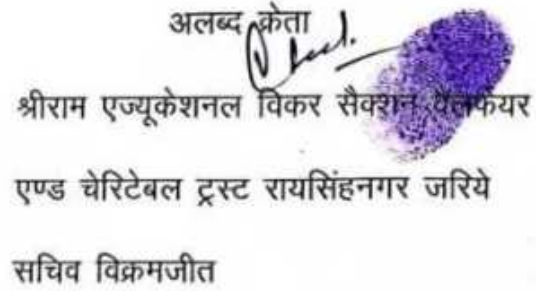 अलब्द क्रेता
श्रीराम एज्यूकेशनल विकर सैक्शन वैलफेयर
एण्ड चेरिटेबल ट्रस्ट रायसिंहनगर जरिये
सचिव विक्रमजीत